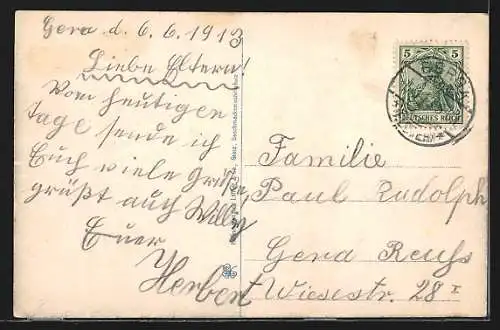 Gera d. 6.6.1913
Liebe Eltern!
Vom heutigen
tage sende ich
Euch viele Grüße,
grüßt auch Willy
Euer
Herbert
5 5
DEUTSCHES REICH
Familie
Paul Rudolph
Gera Reuß
Wiesestr. 28 I